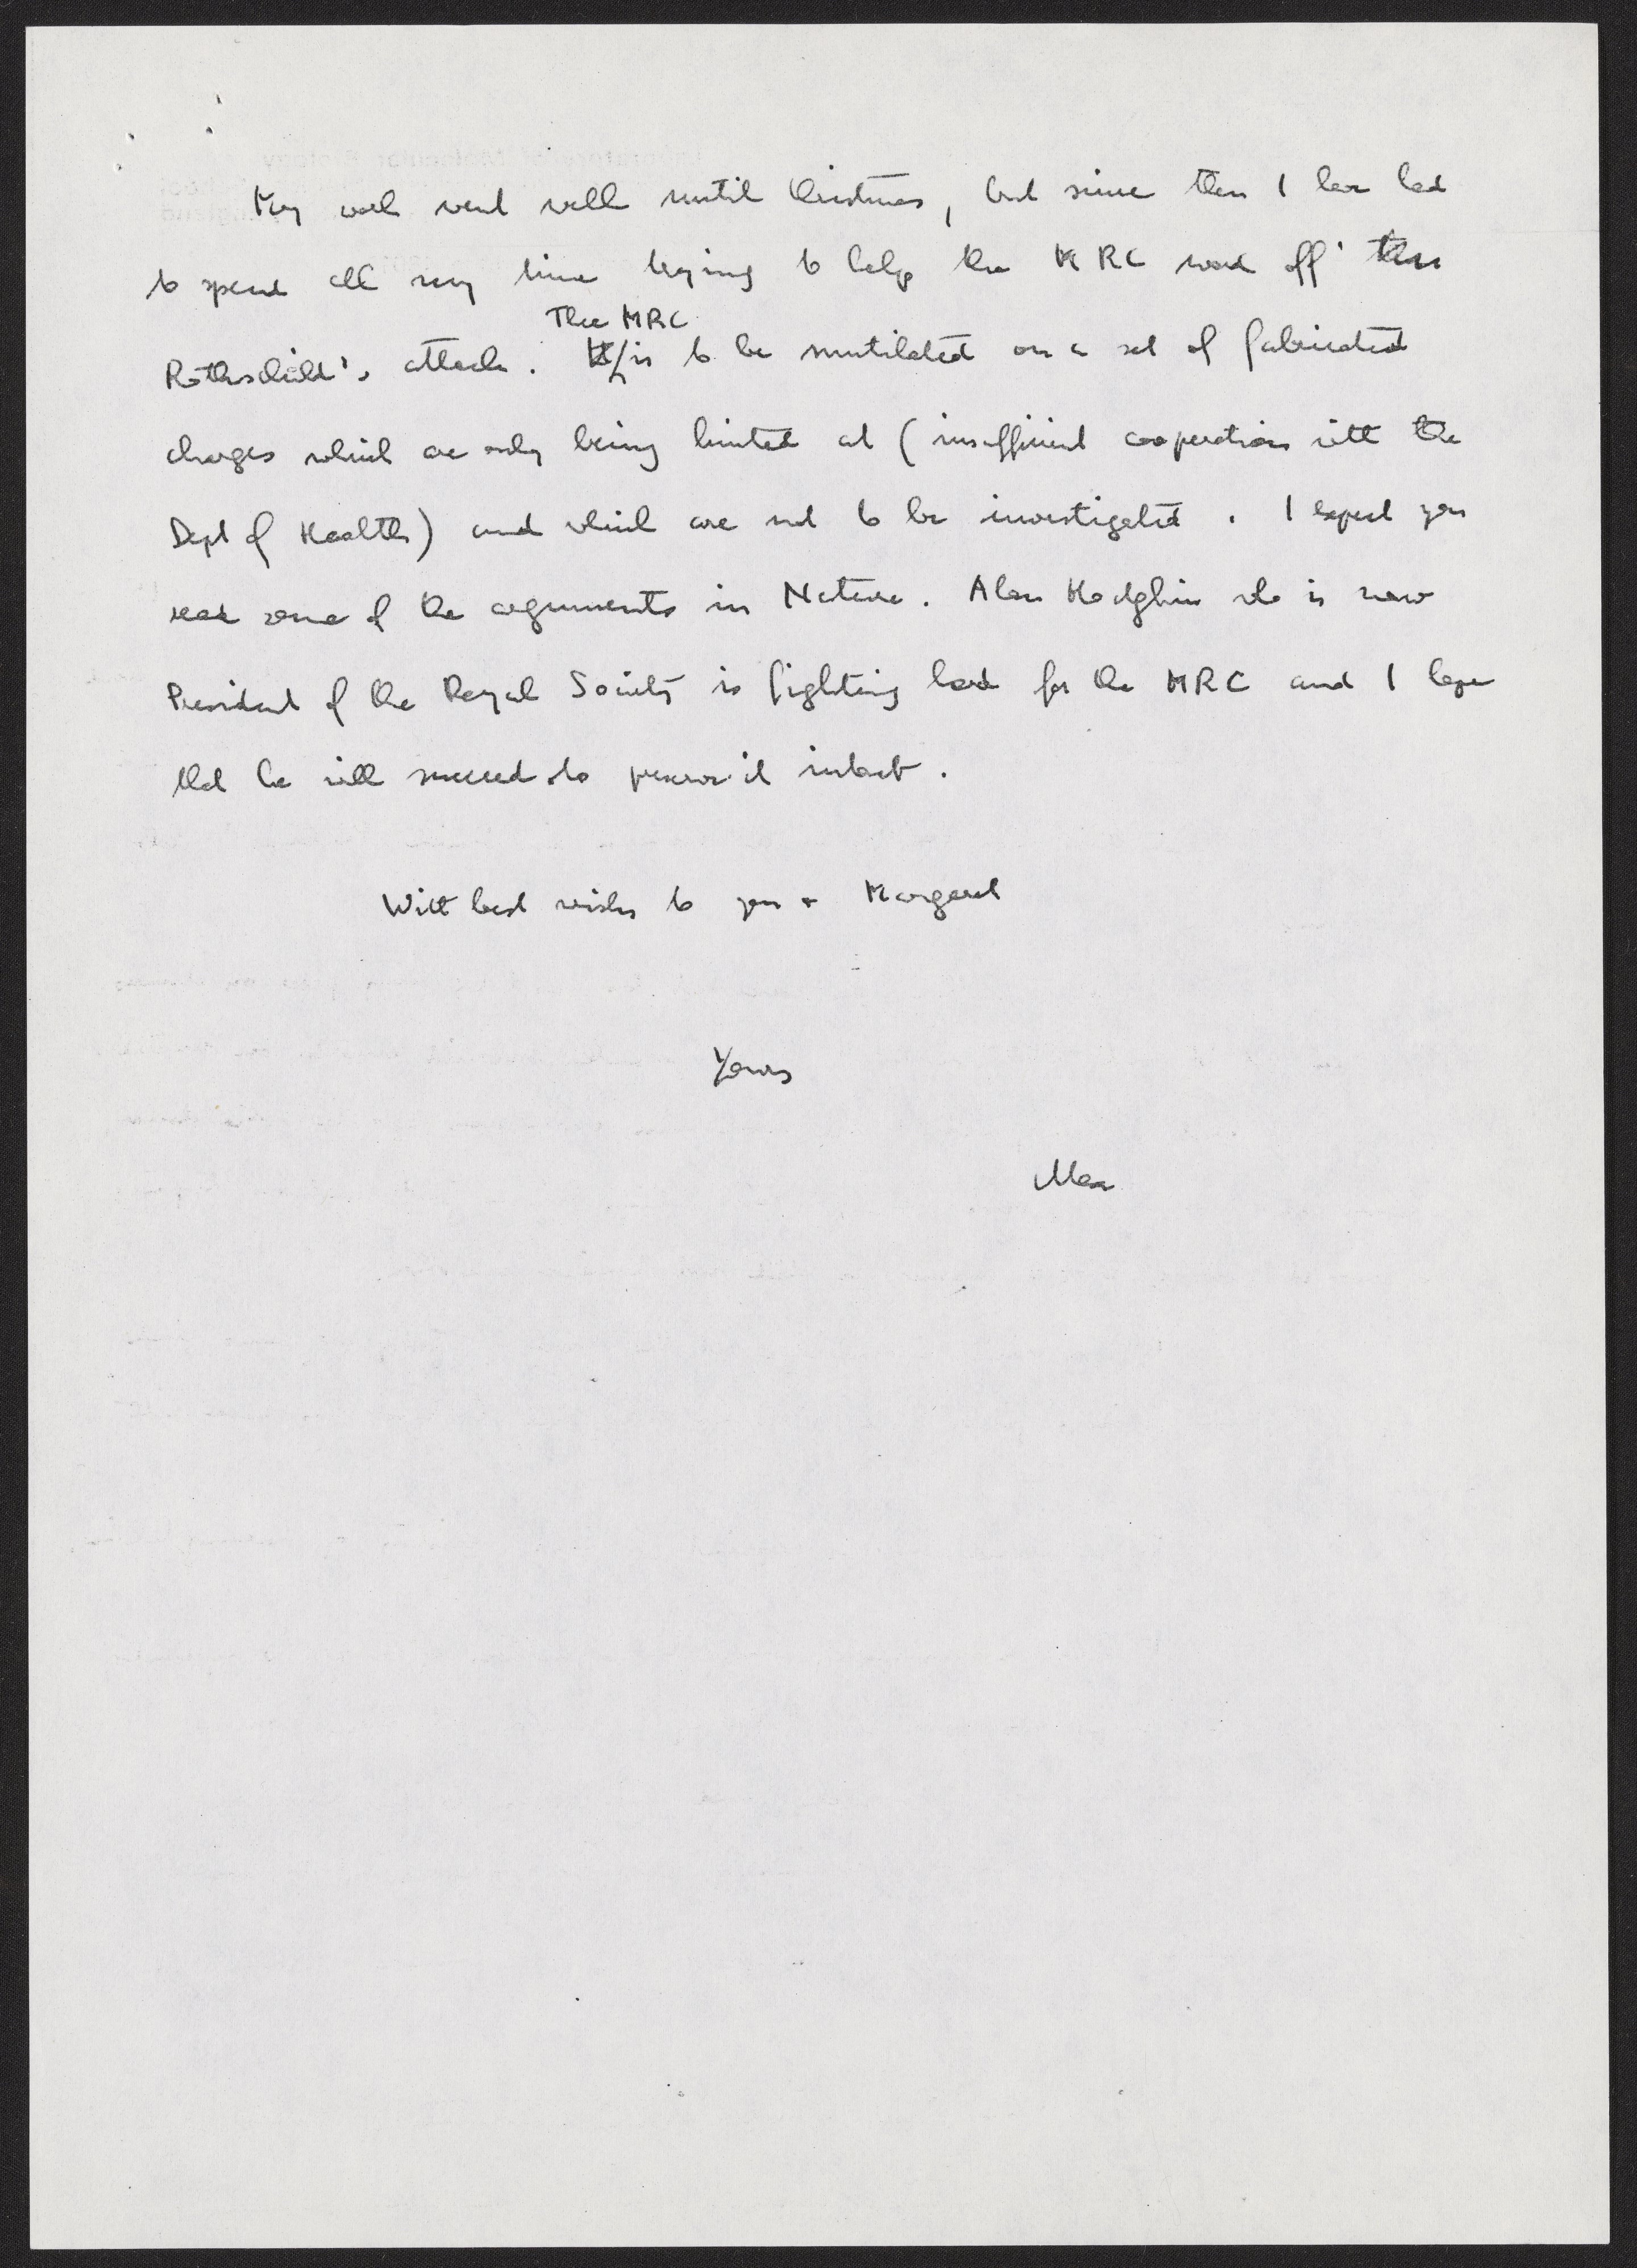 My work went well until Christmas, but since then I have had
to spend all my time trying to help the MRC ward off
Rothschild's attack. The MRC is to be mutilated on a set of fabricated
charges which are only being hinted at (insufficient cooperation with the
Dept of Health) and which are not to be investigated. I expect you
read some of the arguments in Nature. Alan Hodgkin who is now
President of the Royal Society is fighting hard for the MRC and I hope
that he will succeed to preserve it intact.
With best wishes to you + Margaret
Yours
Max